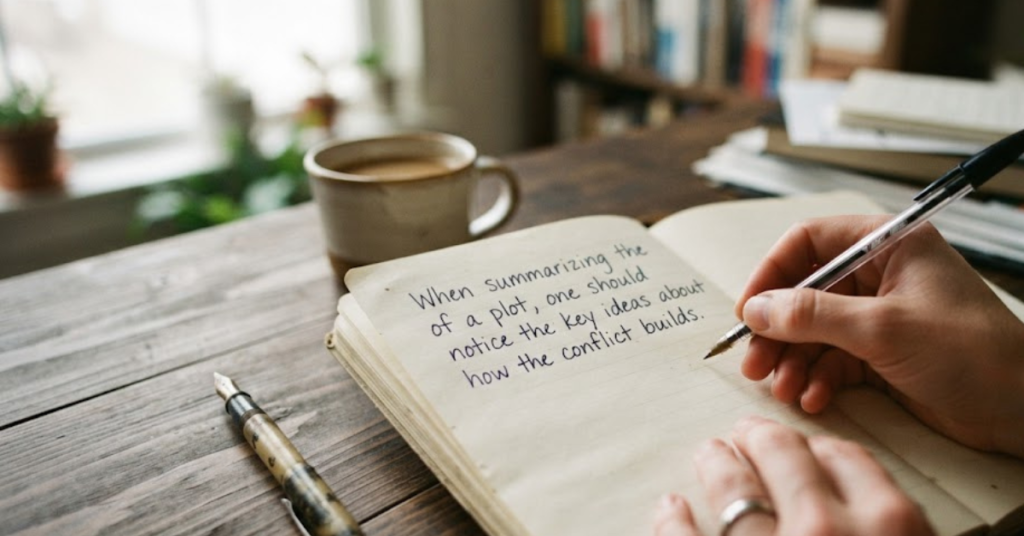 When summarizing the
of a plot, one should
notice the key ideas about
how the conflict builds.